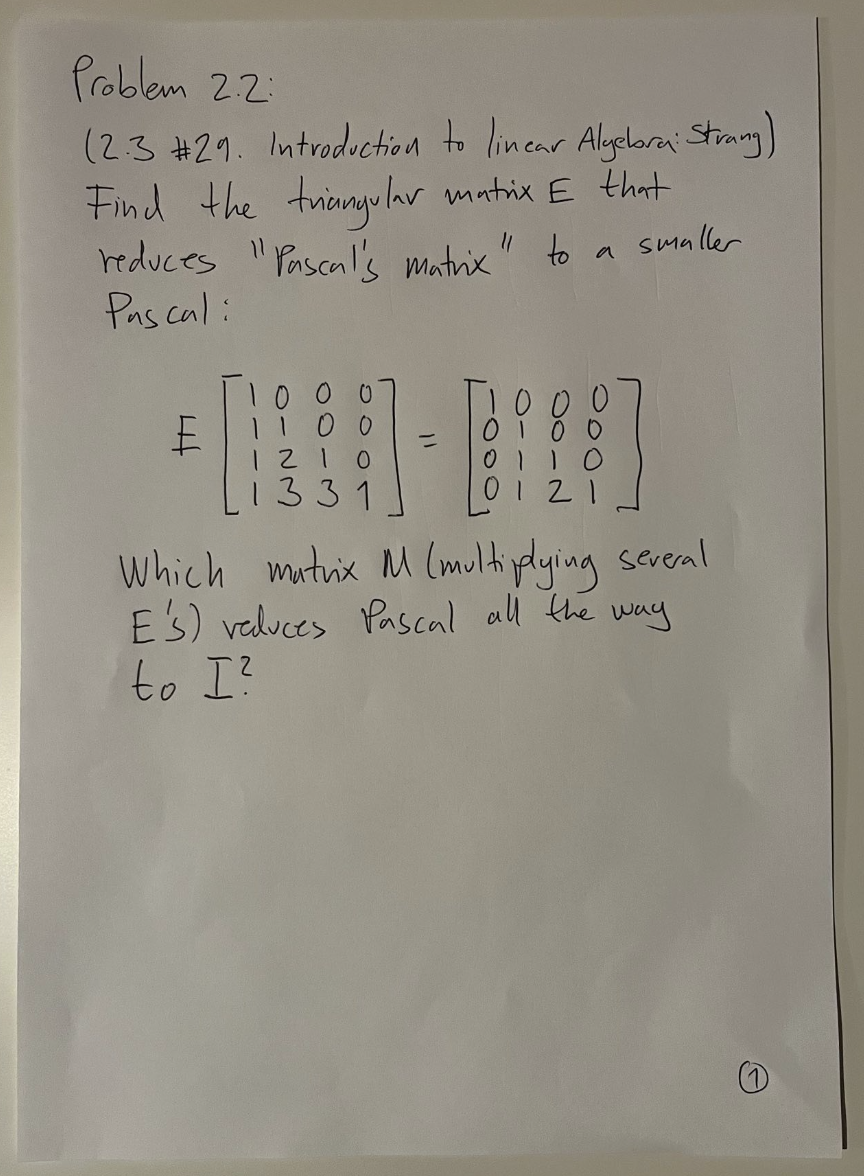 Problem 2.2:
(2.3 #29. Introduction to linear Algebra: Strang)
Find the triangular matrix E that
reduces "Pascal's matrix" to a smaller
Pascal:
E [1 0 0 0; 1 1 0 0; 1 2 1 0; 1 3 3 1] = [1 0 0 0; 0 1 0 0; 0 1 1 0; 0 1 2 1]
Which matrix M (multiplying several
E's) reduces Pascal all the way
to I?
①